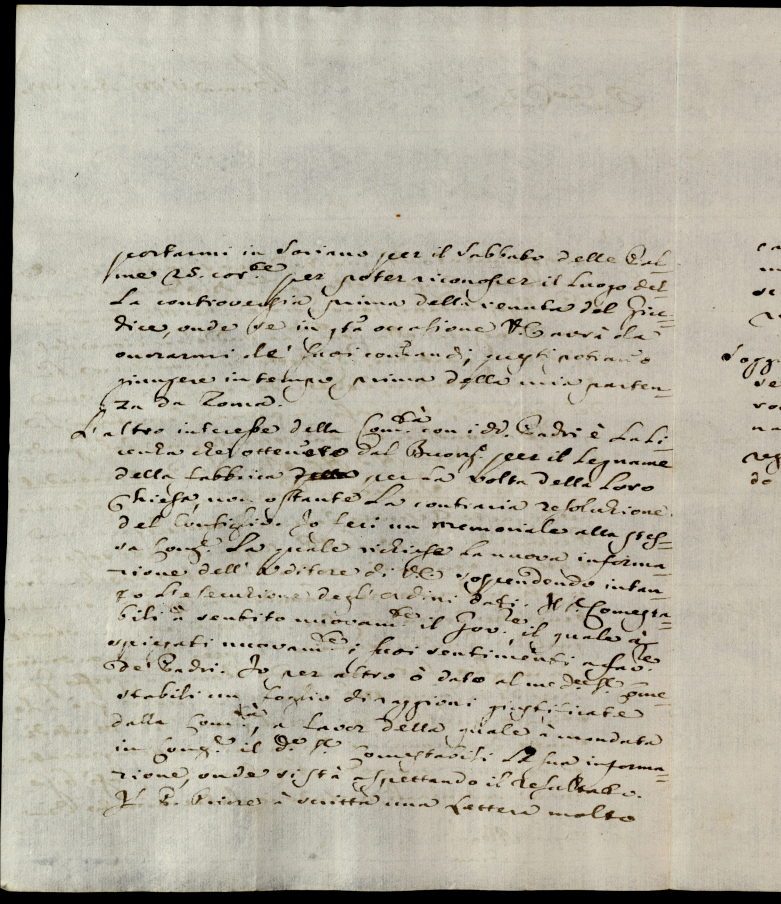 portarmi in Soriano per il Sabbato delle Pal=
me 25. corr.te per poter riconoscer il luogo del=
la controversia prima della venuta del Giu=
dice, onde se in q.ta occasione V.S. avrà da
onorarmi de' suoi comandi, questi potranno
giungere in tempo prima della mia parten=
za da Roma.
L'altro interesse della Com.tà con i dd. Padri è la li=
cenza che ottennero dal Buong. per il legname
della fabbrica per la volta della loro
Chiesa, non ostante la contraria resoluzione
del Consiglio. Io feci un memoriale alla stes=
sa Cong.e la quale richiese la nuova informa=
zione dell' Uditore di V.E. sospendendo intan=
to l'esecuzione degl'ordini dati. Il S.r Comesta=
bili à sentito nuovam.te il Gov.re, il quale à
spiegati nuovam.te i suoi sentimenti a fav.re
de' Padri. Io per altro ò dato al med.o S.r Come=
stabili un foglio di raggioni giustificate
dalla Com.tà, a favor della quale à mandata
in Cong.e il d.o S.r Comestabili la sua informa=
zione, onde si stà aspettando il resultato.
Il P. Priore à scritta una lettera molto